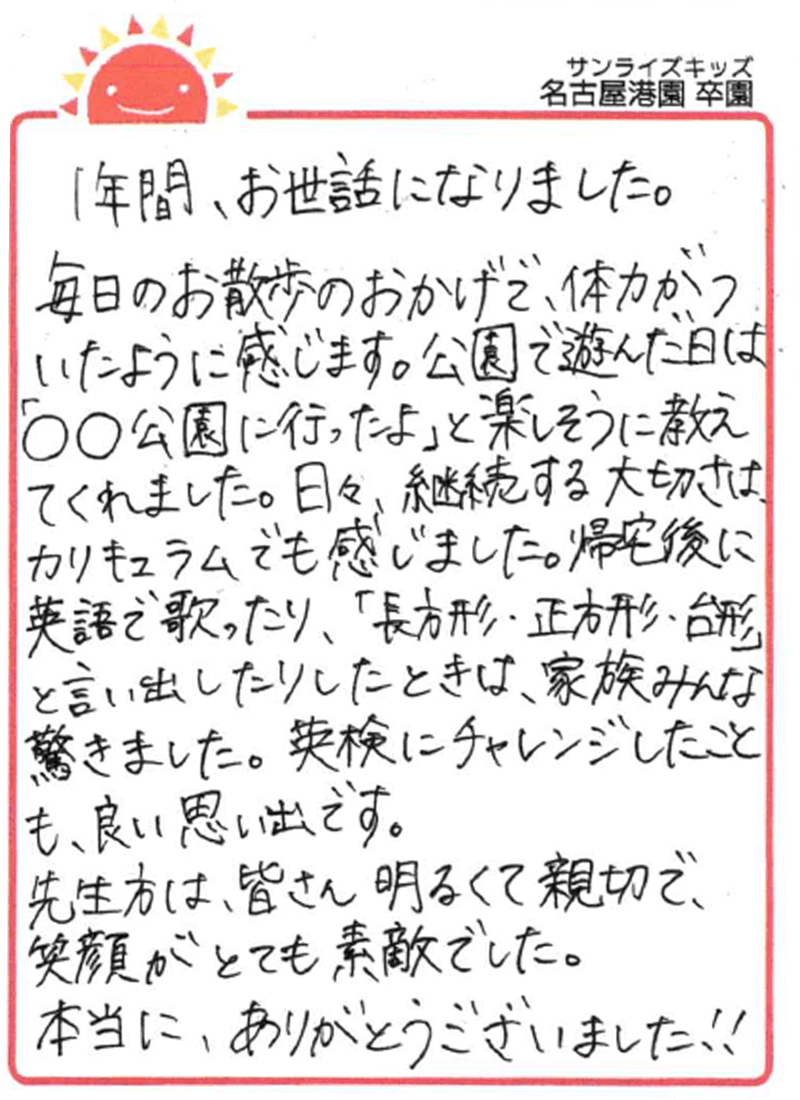 サンライズキッズ
名古屋港園 卒園
1年間、お世話になりました。
毎日のお散歩のおかげで、体力がつ
いたように感じます。公園で遊んだ日は
「〇〇公園に行ったよ」と楽しそうに教え
てくれました。日々、継続する大切さは、
カリキュラムでも感じました。帰宅後に
英語で歌ったり、「長方形・正方形・台形」
と言い出したりしたときは、家族みんな
驚きました。英検にチャレンジしたこと
も、良い思い出です。
先生方は、皆さん明るくて親切で、
笑顔がとても素敵でした。
本当に、ありがとうございました!!